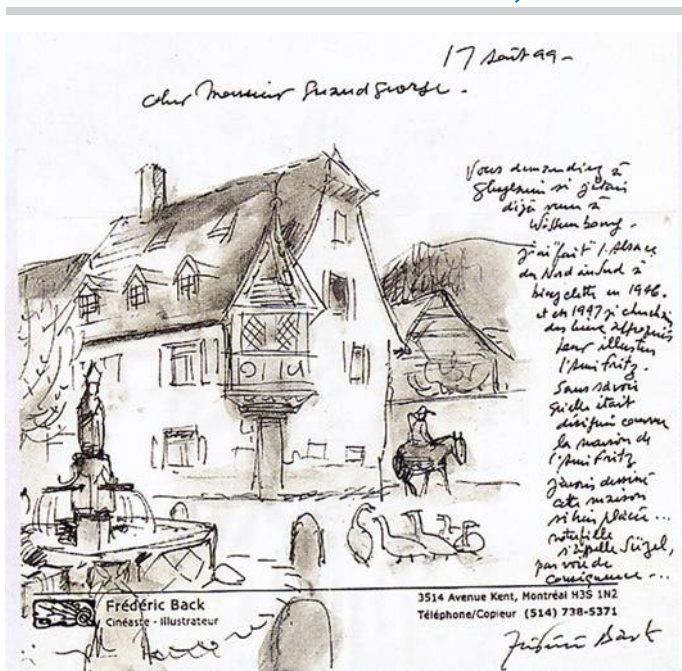 17 Août 99 -
cher Monsieur Grandgeorge.
Vous demandiez à
si j'étais
déjà venu à
Wissembourg -
j'ai "fait" l'Alsace
du Nord au Sud à
bicyclette en 1946.
et en 1947 je cherchais
des lieux appropriés
pour illustrer
l'Ami Fritz.
Sans savoir
qu'elle était
comme
la maison de
l'Ami Fritz
j'avais dessiné
cette maison
si bien placée ...
notre fille
s'appelle Süzel,
par voie de
conséquence -...
Frédéric Back
Cinéaste - Illustrateur
3514 Avenue Kent, Montréal H3S 1N2
Téléphone/Copieur (514) 738-5371
Frédéric Back